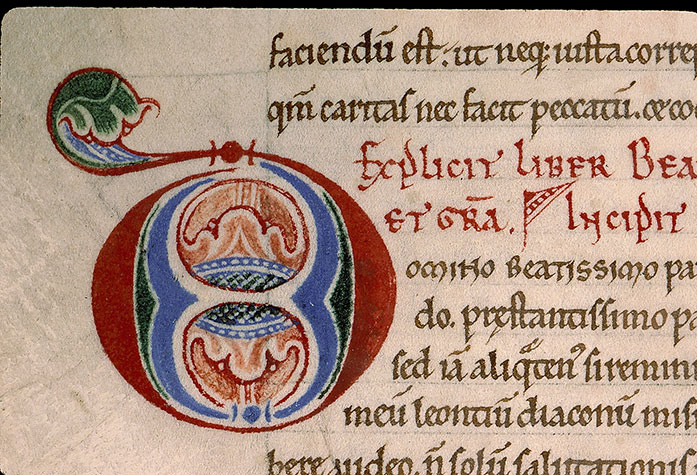 faciendū est; ut neq; iusta corre
qm̄ caritas nec facit peccatū. ce co
Explicit liber Bea
et grā. Incipit
Domino beatissimo pa
do. prestantissimo pa
sed iā aliq̄ten' si remini
meū leontiū diaconū mis
bere audeo. n̄ solū salutationis